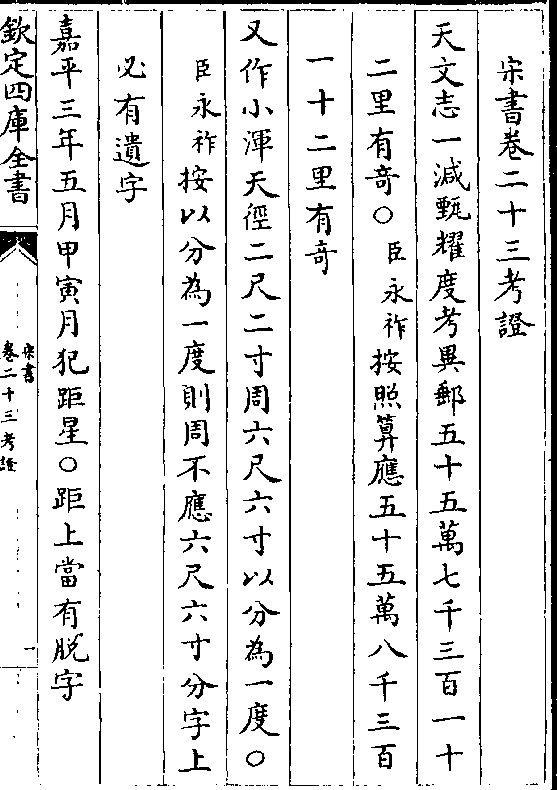 宋書卷二十三考證
天文志一減甄耀度考異郵五十五萬七千三百一十
二里有奇〇臣永祚按照算應五十五萬八千三百
一十二里有奇
又作小渾天徑二尺二寸周六尺六寸以分為一度〇
臣永祚按以分為一度則周不應六尺六寸分字上
必有遺字
嘉平三年五月甲寅月犯距星〇距上當有脫字
欽定四庫全書
宋書
卷二十三考證
一